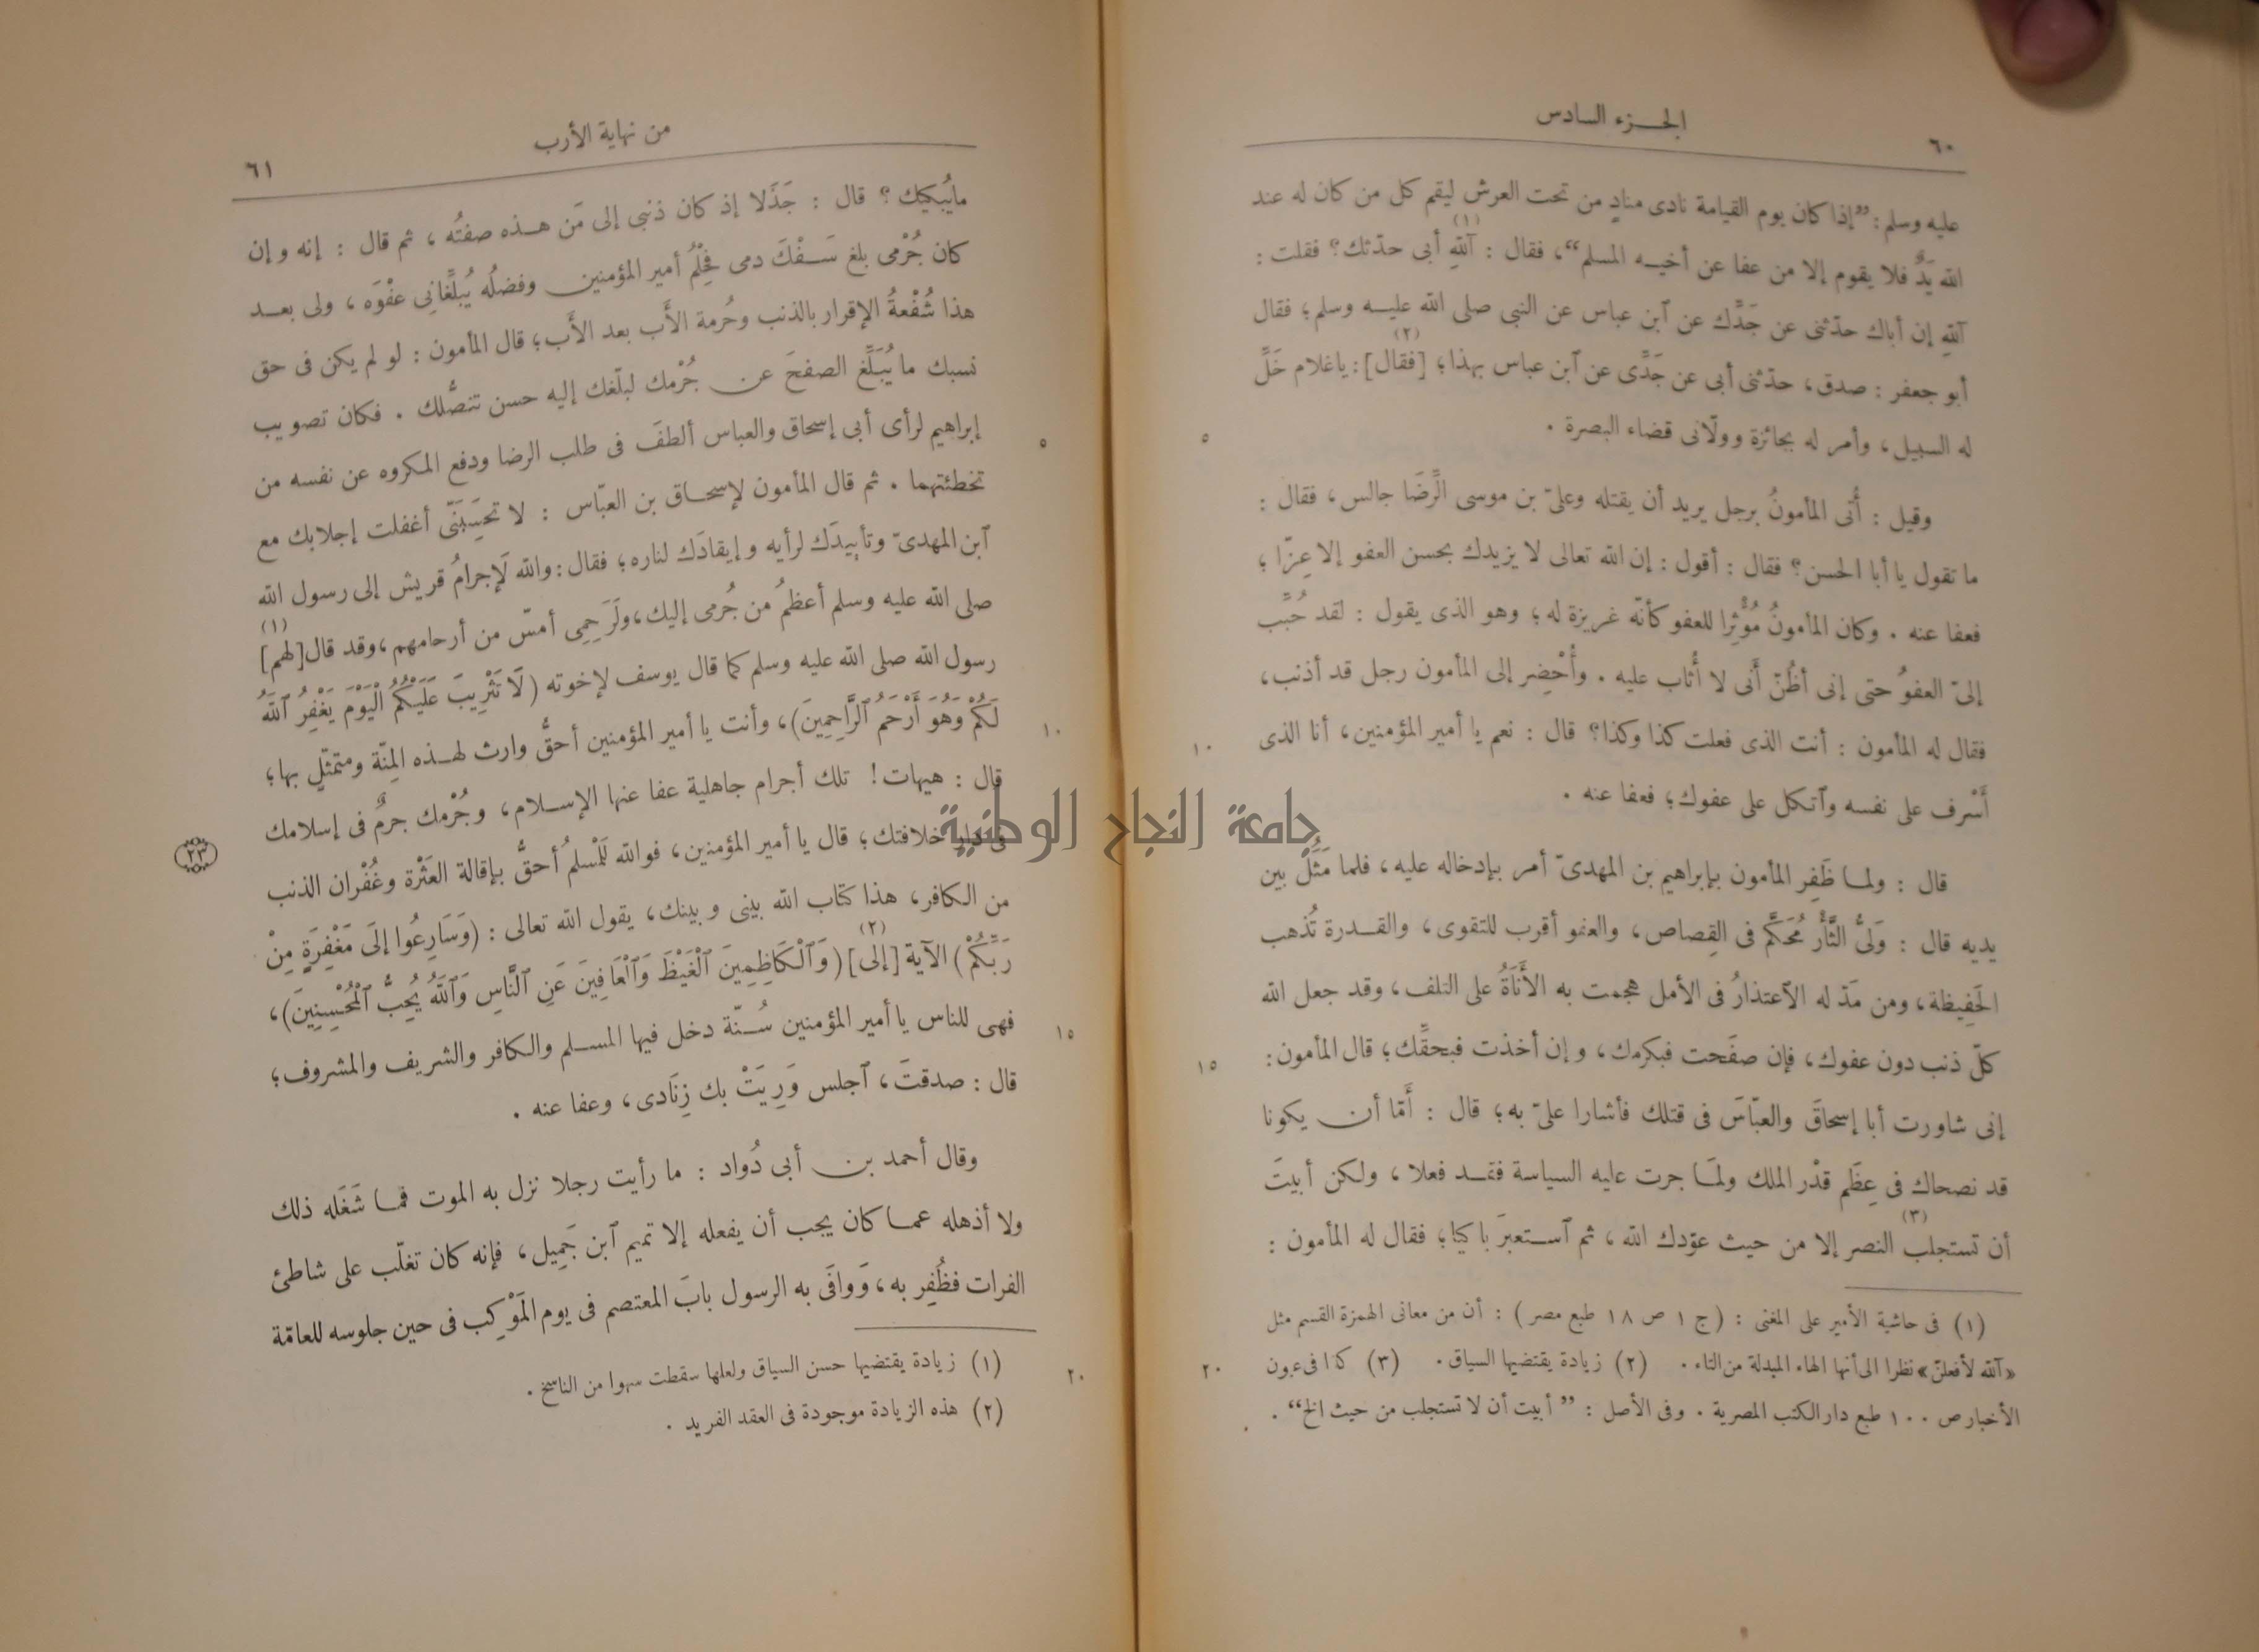 الجـزء السادس
٦٠
عليه وسلم: ”إذا كان يوم القيامة نادى منادٍ من تحت العرش ليقم كل من كان له عند
الله يَدٌ فلا يقوم إلا من عفا عن أخيـه المسلم“، فقال : آللهِ (١) أبى حدّثك؟ فقلت :
آللهِ إن أباك حدّثنى عن جَدِّك عن ٱبن عباس عن النبى صلى الله عليـه وسلم؛ فقال
أبو جعفر : صدق، حدّثنى أبى عن جَدِّى عن ٱبن عباس بهذا؛ [فقال] (٢): ياغلام خَلِّ
له السبيل، وأمر له بجائزة وولّانى قضاء البصرة .
٥
وقيل : أُتى المأمونُ برجل يريد أن يقتله وعلىّ بن موسى الرِّضَا جالس، فقال :
ما تقول يا أبا الحسن؟ فقال : أقول : إن الله تعالى لا يزيدك بحسن العفو إلا عِزّا ؛
فعفا عنه . وكان المأمونُ مُؤْثِرا للعفو كأنّه غريزة له؛ وهو الذى يقول : لقد حُبِّب
إلىّ العفوُ حتى إنى أظُنّ أَنى لا أُثاب عليه . وأُحْضِر إلى المأمون رجل قد أذنب،
فقال له المأمون : أنت الذى فعلت كذا وكذا؟ قال : نعم يا أمير المؤمنين، أنا الذى
١٠
أَسْرف على نفسه وٱتكل على عفوك؛ فعفا عنه .
قال : ولمـا ظَفِر المأمون بإبراهيم بن المهدىّ أمر بإدخاله عليه، فلما مَثَلَ بين
يديه قال : وَلىُّ الثَّأْر مُحَكَّم فى القِصاص، والعفو أقرب للتقوى، والقـدرة تُذهب
الحَفِيظة، ومن مَدّ له الٱعتذارُ فى الأمل هجمت به الأَنَاةُ على التلف، وقد جعل الله
كلّ ذنب دون عفوك، فإن صفَحت فبكرمك، وإن أخذت فبحقِّك؛ قال المأمون:
١٥
إنى شاورت أبا إسحاقَ والعبّاسَ فى قتلك فأشارا علىّ به؛ قال : أَمّا أن يكونا
قد نصحاك فى عِظَم قدْر الملك ولمَـا جرت عليه السياسة فقـد فعلا ، ولكن أبيتَ
أن تستجلب (٣) النصر إلا من حيث عوّدك الله ، ثم ٱسـتعبرَ باكيا؛ فقال له المأمون :
(١) فى حاشية الأمير على المغنى : (ج ١ ص ١٨ طبع مصر) : أن من معانى الهمزة القسم مثل
«آلله لأفعلنّ» نظرا الى أنها الهاء المبدلة من التاء . (٢) زيادة يقتضيها السياق . (٣) كذا فى عيون
٢٠
الأخبار ص ١٠٠ طبع دار الكتب المصرية . وفى الأصل : ”أبيت أن لا تستجلب من حيث الخ“ .
من نهاية الأرب
٦١
مايُبكيك؟ قال : جَذَلا إذ كان ذنبى إلى مَن هـذه صفتُه ، ثم قال : إنه وإن
كان جُرْمى بلغ سَـفْكَ دمى فحِلْمُ أمير المؤمنين وفضلُه يُبلِّغانى عفْوَه ، ولى بعـد
هذا شُفْعةُ الإقرار بالذنب وحُرمة الأَب بعد الأَب؛ قال المأمون : لو لم يكن فى حق
نسبك ما يُبَلِّغ الصفحَ عن جُرْمك لبلّغك إليه حسن تنصُّلك . فكان تصويب
إبراهيم لرأى أبى إسحاق والعباس ألطفَ فى طلب الرضا ودفع المكروه عن نفسه من
٥
تخطئتهما . ثم قال المأمون لإسحـاق بن العبّاس : لا تحسَِبَنّى أغفلت إجلابك مع
ٱبن المهدىّ وتأييدَك لرأيه وإيقادَك لناره؛ فقال: والله لَإجرامُ قريش إلى رسول الله
صلى الله عليه وسلم أعظمُ من جُرمى إليك، ولَرَحِمِى أمسّ من أرحامهم، وقد قال [لهم] (١)
رسول الله صلى الله عليه وسلم كما قال يوسف لإخوته (لَا تَثْرِيبَ عَلَيْكُمُ الْيَوْمَ يَغْفِرُ ٱللهُ
لَكُمْ وَهُوَ أَرْحَمُ ٱلرَّاحِمِينَ)، وأنت يا أمير المؤمنين أحقُّ وارث لهـذه المِنّة ومتمثّلٍ بها؛
١٠
قال : هيهات! تلك أجرام جاهلية عفا عنها الإسـلام، وجُرْمك جرمٌ فى إسلامك
فى دار خلافتك؛ قال يا أمير المؤمنين، فوالله لَلْمسلمُ أحقُّ بإقالة العَثْرة وغُفْران الذنب
٢٣
من الكافر، هذا كتاب الله بينى وبينك، يقول الله تعالى : (وَسَارِعُوا إلَى مَغْفِرَةٍ مِنْ
رَبِّكُمْ) الآية [إلى] (٢) (وَٱلْكَاظِمِينَ ٱلْغَيْظَ وَٱلْعَافِينَ عَنِ ٱلنَّاسِ وَٱللهُ يُحِبُّ ٱلْمُحْسِنِينَ)،
فهى للناس يا أمير المؤمنين سُـنّة دخل فيها المسـلم والكافر والشريف والمشروف؛
١٥
قال : صدقتَ، ٱجلس وَرِيَتْ بك زِنَادى، وعفا عنه .
وقال أحمد بن أبى دُواد : ما رأيت رجلا نزل به الموت فمـا شَغَله ذلك
ولا أذهله عمـا كان يجب أن يفعله إلا تميم ٱبن جَمِيل، فإنه كان تغلّب على شاطئ
الفرات فظُفِر به، وَوافَى به الرسول بابَ المعتصم فى يوم المَوْكِب فى حين جلوسه للعامّة
(١) زيادة يقتضيها حسن السياق ولعلها سقطت سهوا من الناسخ .
٢٠
(٢) هذه الزيادة موجودة فى العقد الفريد .
جامعة النجاح الوطنية